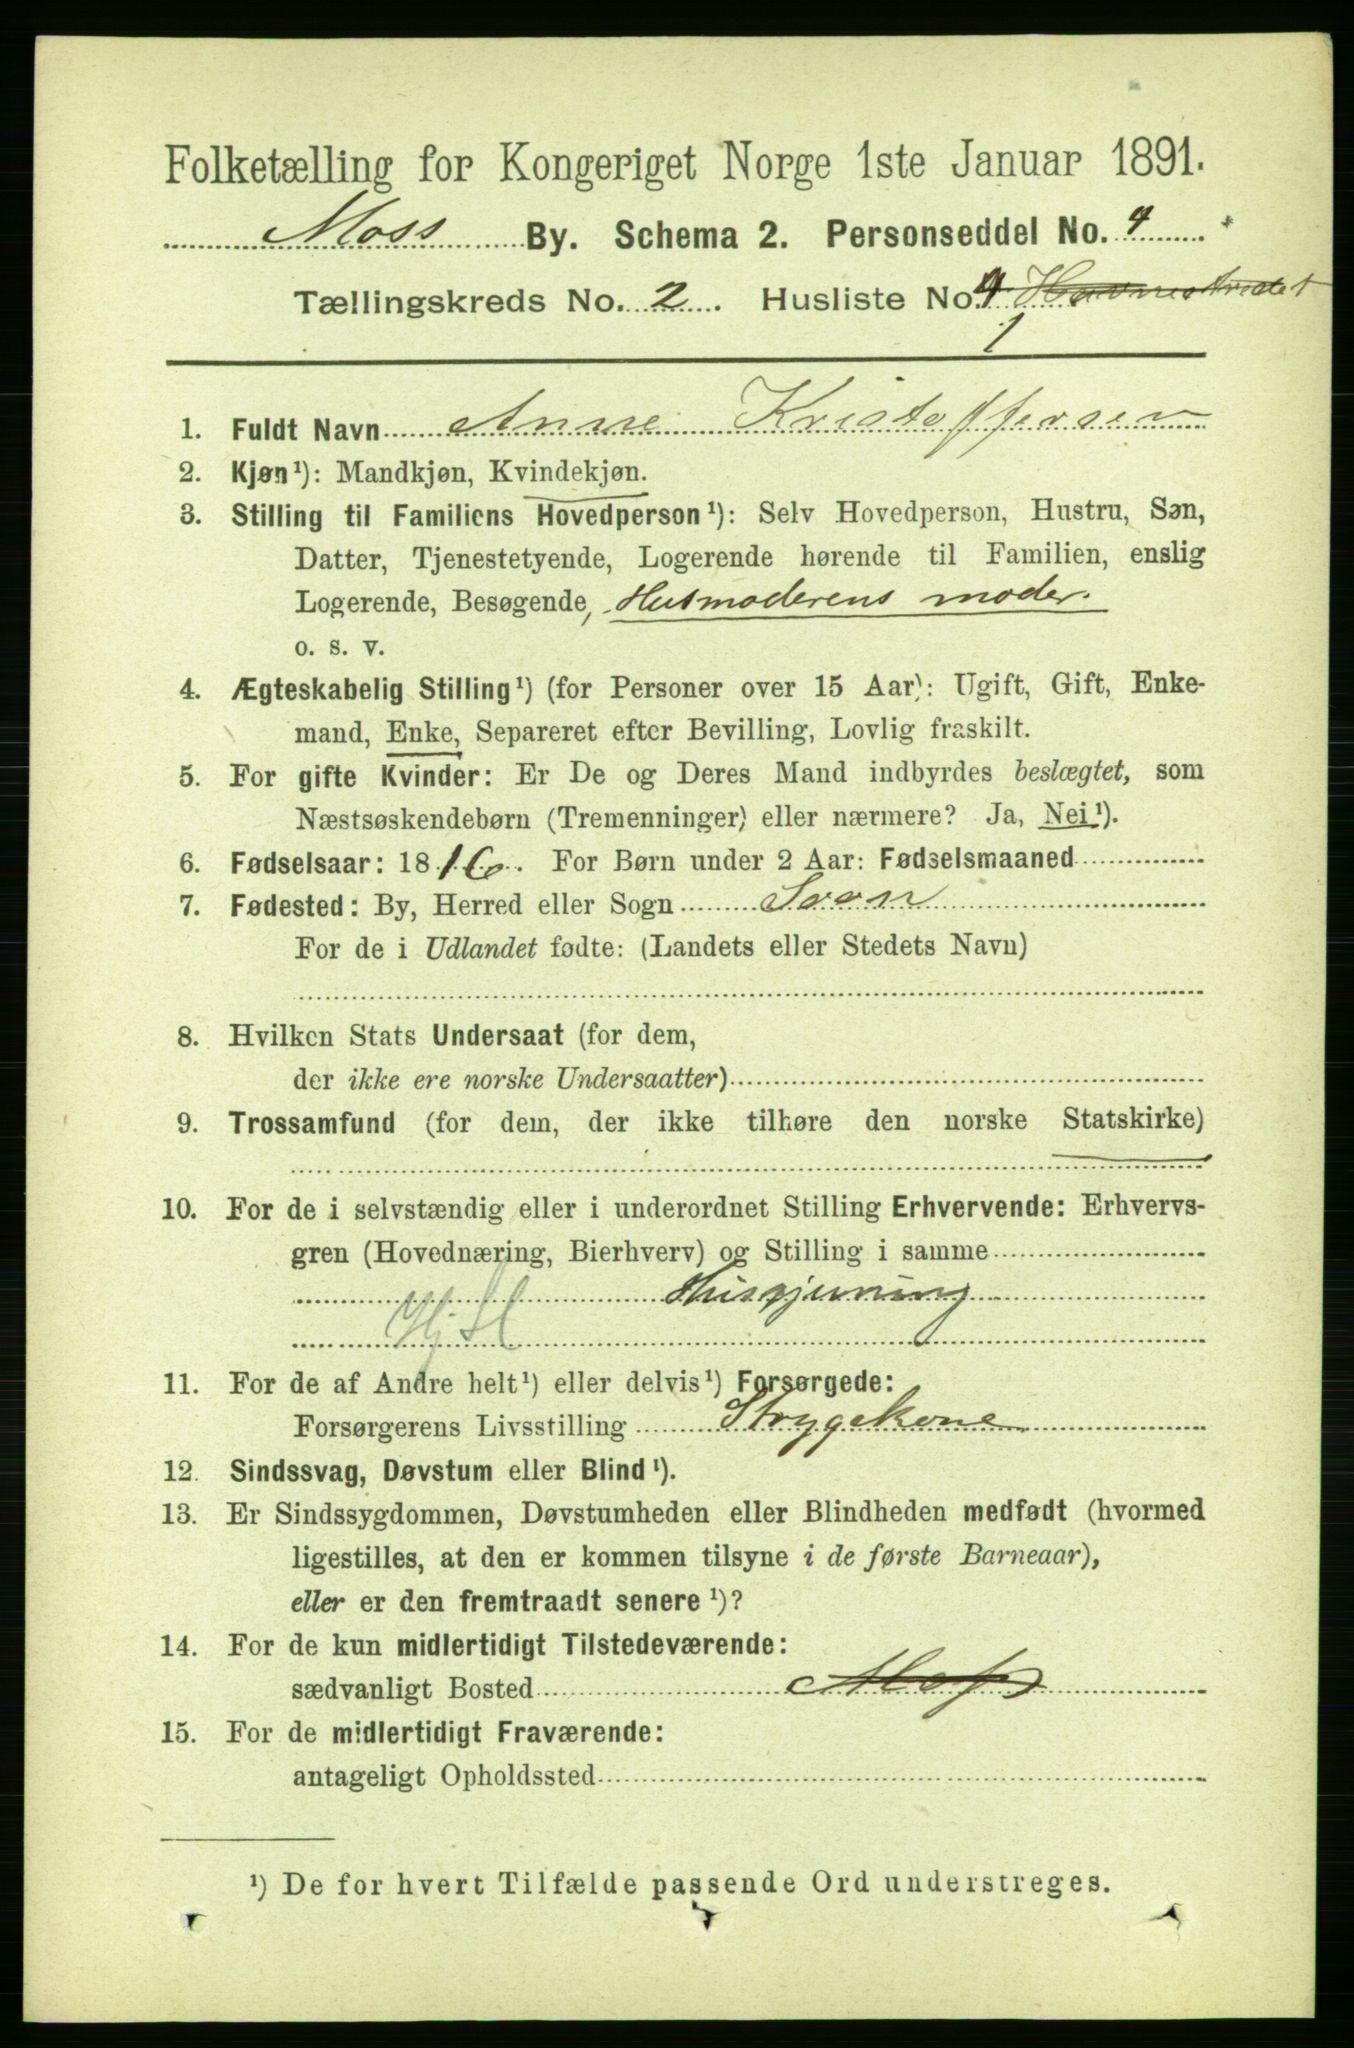 Folketælling for Kongeriget Norge 1ste Januar 1891.
Moss By. Schema 2. Personseddel No. 4
Tællingskreds No. 2. Husliste No. 4 Havnestrædet
1
1. Fuldt Navn Anne Kristoffersen
2. Kjøn¹): Mandkjøn, Kvindekjøn.
3. Stilling til Familiens Hovedperson¹): Selv Hovedperson, Hustru, Søn,
Datter, Tjenestetyende, Logerende hørende til Familien, enslig
Logerende, Besøgende, Husmoderens moder.
o. s. v.
4. Ægteskabelig Stilling¹) (for Personer over 15 Aar): Ugift, Gift, Enke-
mand, Enke, Separeret efter Bevilling, Lovlig fraskilt.
5. For gifte Kvinder: Er De og Deres Mand indbyrdes beslægtet, som
Næstsøskendebørn (Tremenninger) eller nærmere? Ja, Nei¹).
6. Fødselsaar: 1816. For Børn under 2 Aar: Fødselsmaaned
7. Fødested: By, Herred eller Sogn Soon
For de i Udlandet fødte: (Landets eller Stedets Navn)
8. Hvilken Stats Undersaat (for dem,
der ikke ere norske Undersaatter)
9. Trossamfund (for dem, der ikke tilhøre den norske Statskirke)
10. For de i selvstændig eller i underordnet Stilling Erhvervende: Erhvervs-
gren (Hovednæring, Bierhverv) og Stilling i samme
Husgjerning
11. For de af Andre helt¹) eller delvis¹) Forsørgede:
Forsørgerens Livsstilling Strygekone
12. Sindssvag, Døvstum eller Blind¹).
13. Er Sindssygdommen, Døvstumheden eller Blindheden medfødt (hvormed
ligestilles, at den er kommen tilsyne i de første Barneaar),
eller er den fremtraadt senere¹)?
14. For de kun midlertidigt Tilstedeværende:
sædvanligt Bosted Moss
15. For de midlertidigt Fraværende:
antageligt Opholdssted
¹) De for hvert Tilfælde passende Ord understreges.